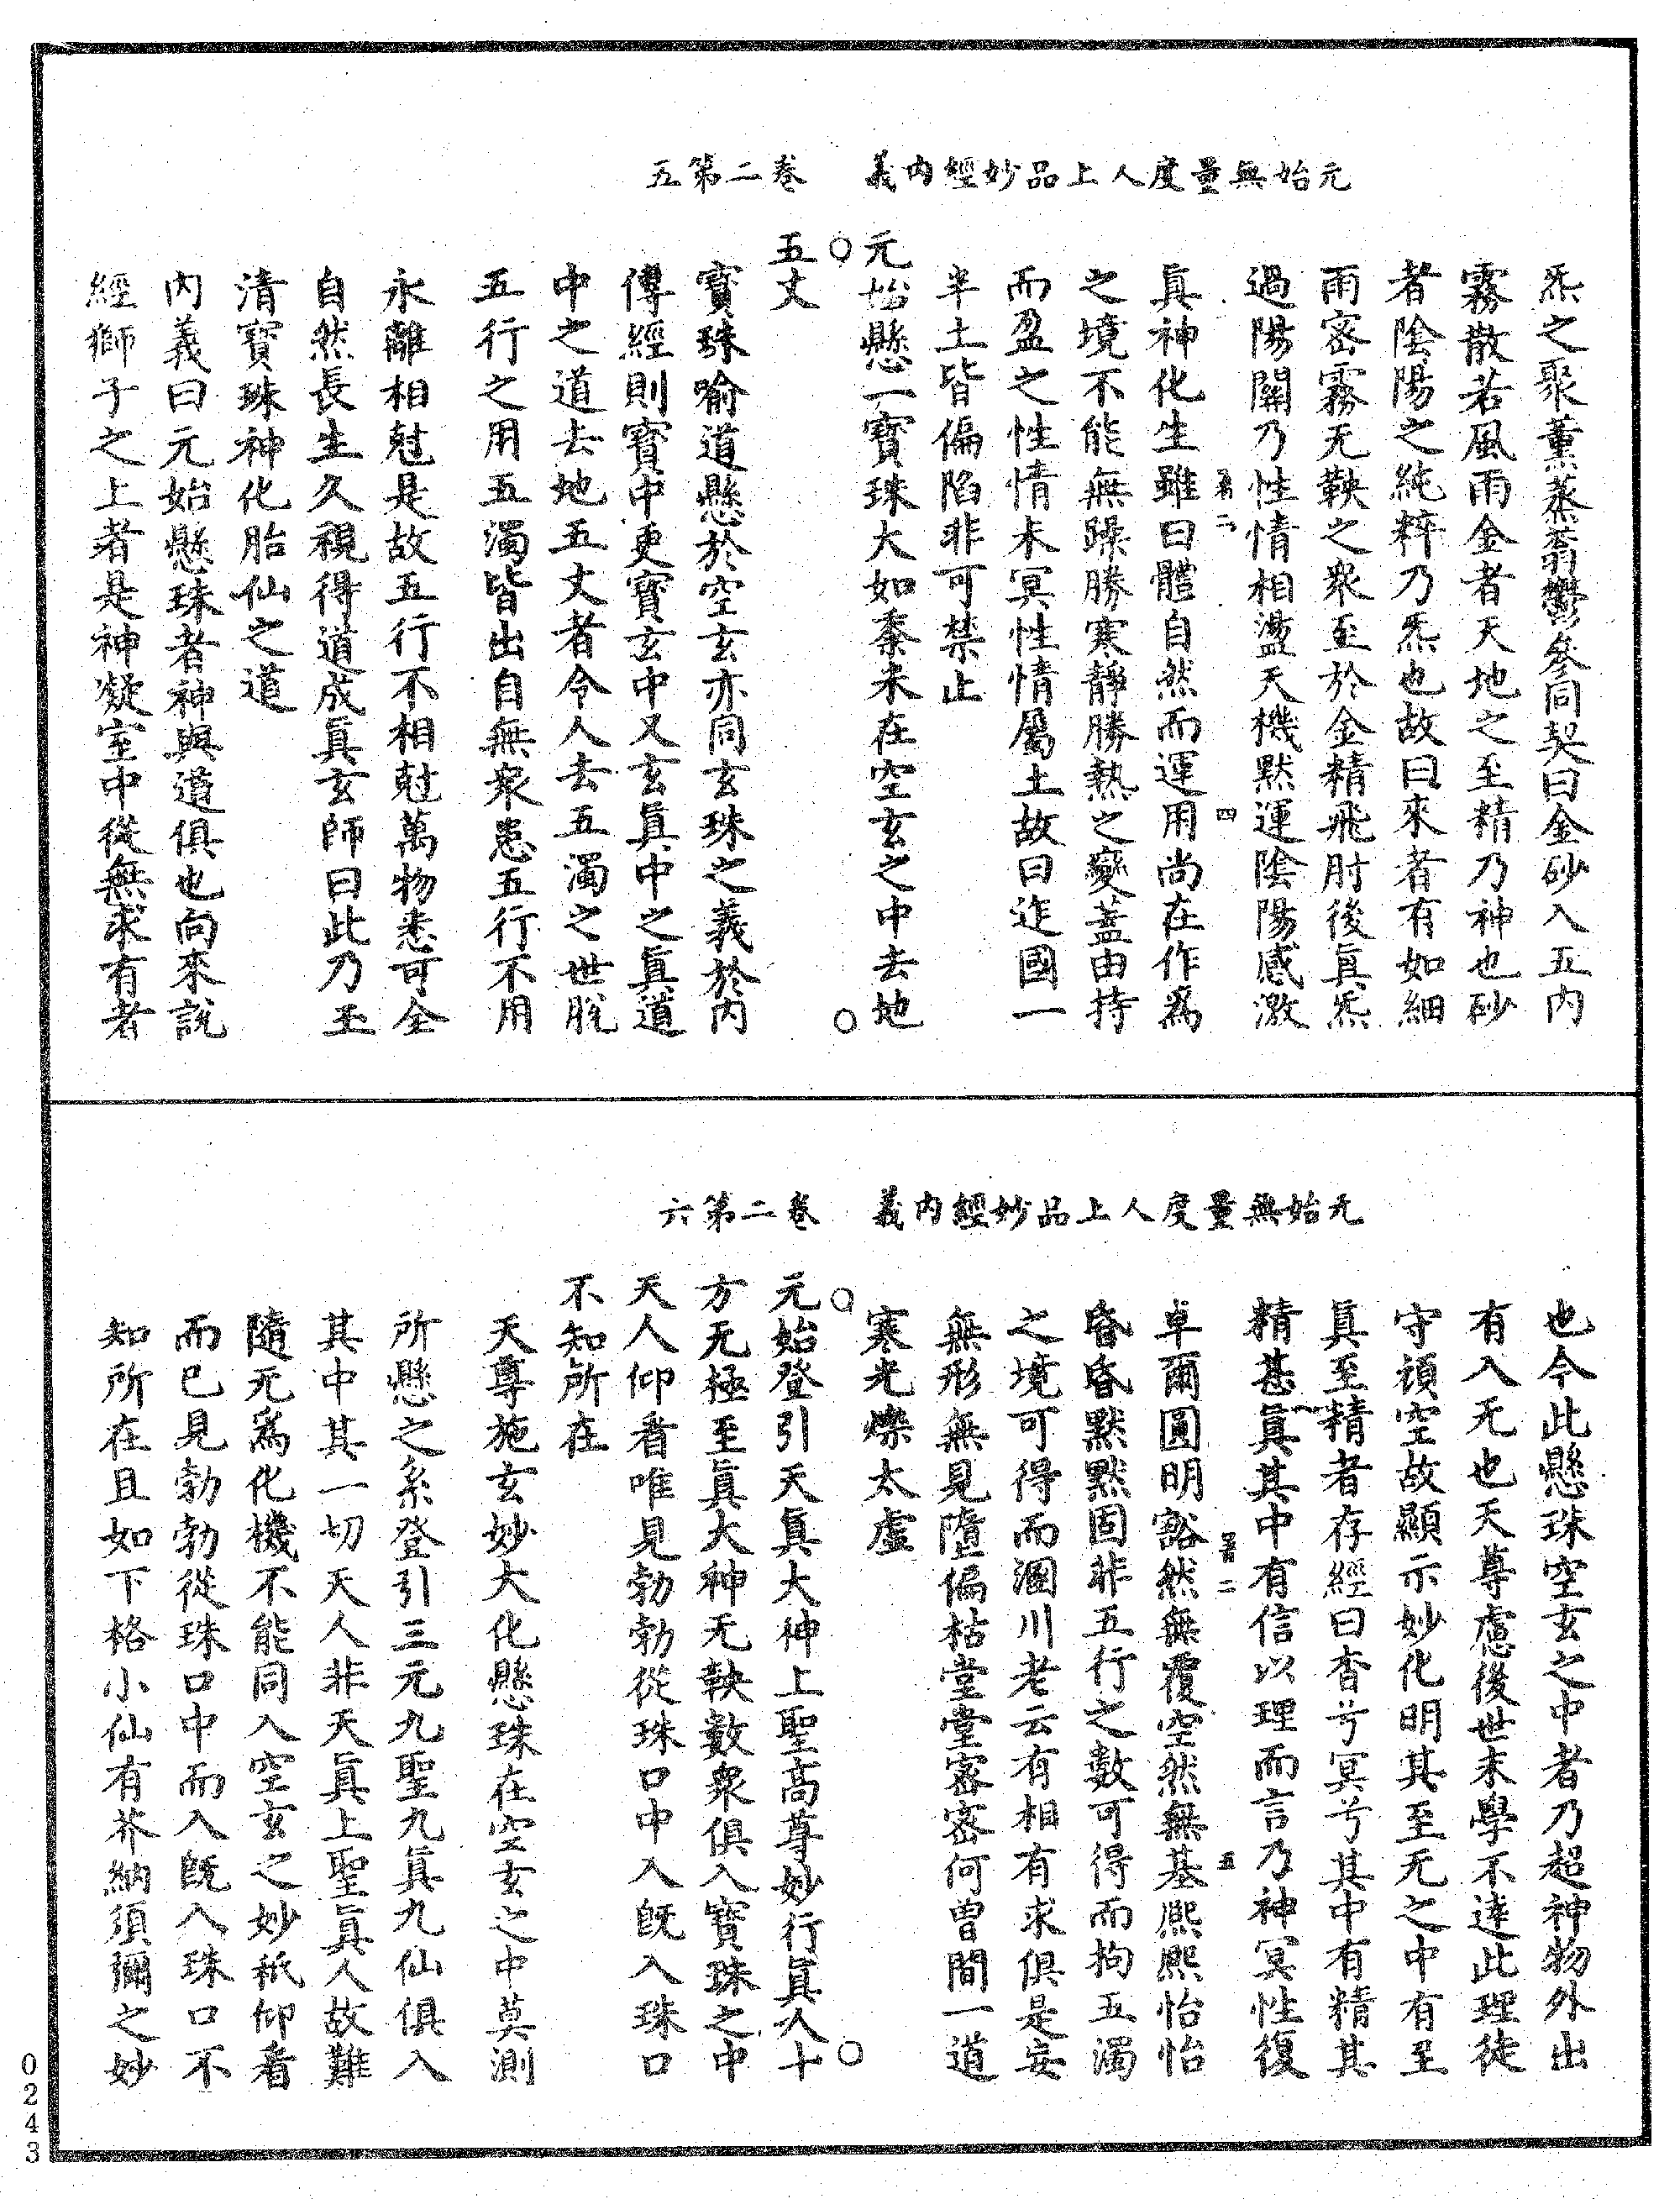 元始無量度人上品妙經內義　卷二第五
炁之聚薰蒸蓊鬱參同契曰金砂入五內
霧散若風雨金者天地之至精乃神也砂
者陰陽之純粹乃炁也故曰來者有如細
雨密霧无鞅之衆至於金精飛肘後眞炁
過陽關乃性情相盪天機默運陰陽感激
眞神化生雖曰體自然而運用尚在作爲
之境不能無躁勝寒靜勝熱之變蓋由持
而盈之性情未冥性情屬土故曰迮國一
半土皆偏陷非可禁止
元始懸一寶珠大如黍米在空玄之中去地
五丈
寶珠喻道懸於空玄亦同玄珠之義於內
傳經則寶中更寶玄中又玄眞中之眞道
中之道去地五丈者令人去五濁之世脫
五行之用五濁皆出自無衆患五行不用
永離相尅是故五行不相尅萬物悉可全
自然長生久視得道成眞玄師曰此乃玉
清寶珠神化胎仙之道
內義曰元始懸珠者神與道俱也向來說
經獅子之上者是神凝室中從無求有者
元始無量度人上品妙經內義　卷二第六
也今此懸珠空玄之中者乃超神物外出
有入无也天尊慮後世末學不達此理徒
守頑空故顯示妙化明其至无之中有至
眞至精者存經曰杳兮冥兮其中有精其
精甚眞其中有信以理而言乃神冥性復
卓爾圓明豁然無覆空然無基熙熙怡怡
昏昏默默固非五行之數可得而拘五濁
之境可得而溷川老云有相有求俱是妄
無形無見墮偏枯堂堂密密何曾間一道
寒光爍太虛
元始登引天眞大神上聖高尊妙行眞人十
方无極至眞大神无鞅數衆俱入寶珠之中
天人仰看唯見勃勃從珠口中入旣入珠口
不知所在
天尊施玄妙大化懸珠在空玄之中莫測
所懸之系登引三元九聖九眞九仙俱入
其中其一切天人非天眞上聖眞人故難
隨元爲化機不能同入空玄之妙秖仰看
而已見勃勃從珠口中而入旣入珠口不
知所在且如下格小仙有芥納須彌之妙
0243